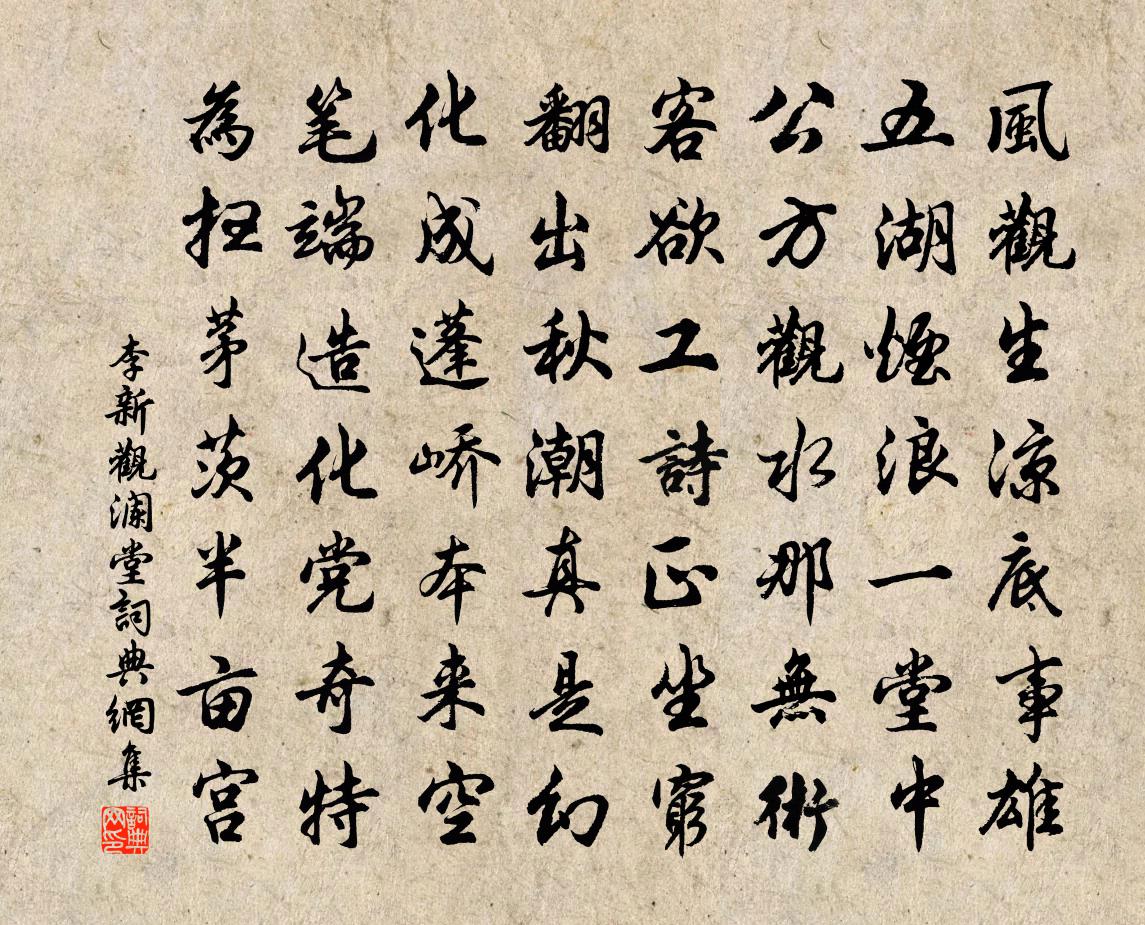 風觀生涼底事雄
五湖煙浪一堂中
公方觀水那無術
客欲工詩正坐窮
翻出秋潮真是幻
化成蓬嶠本来空
笔端造化党奇特
為扫茅茨半亩宫
李新觀澜堂詞典網集
詞典网印